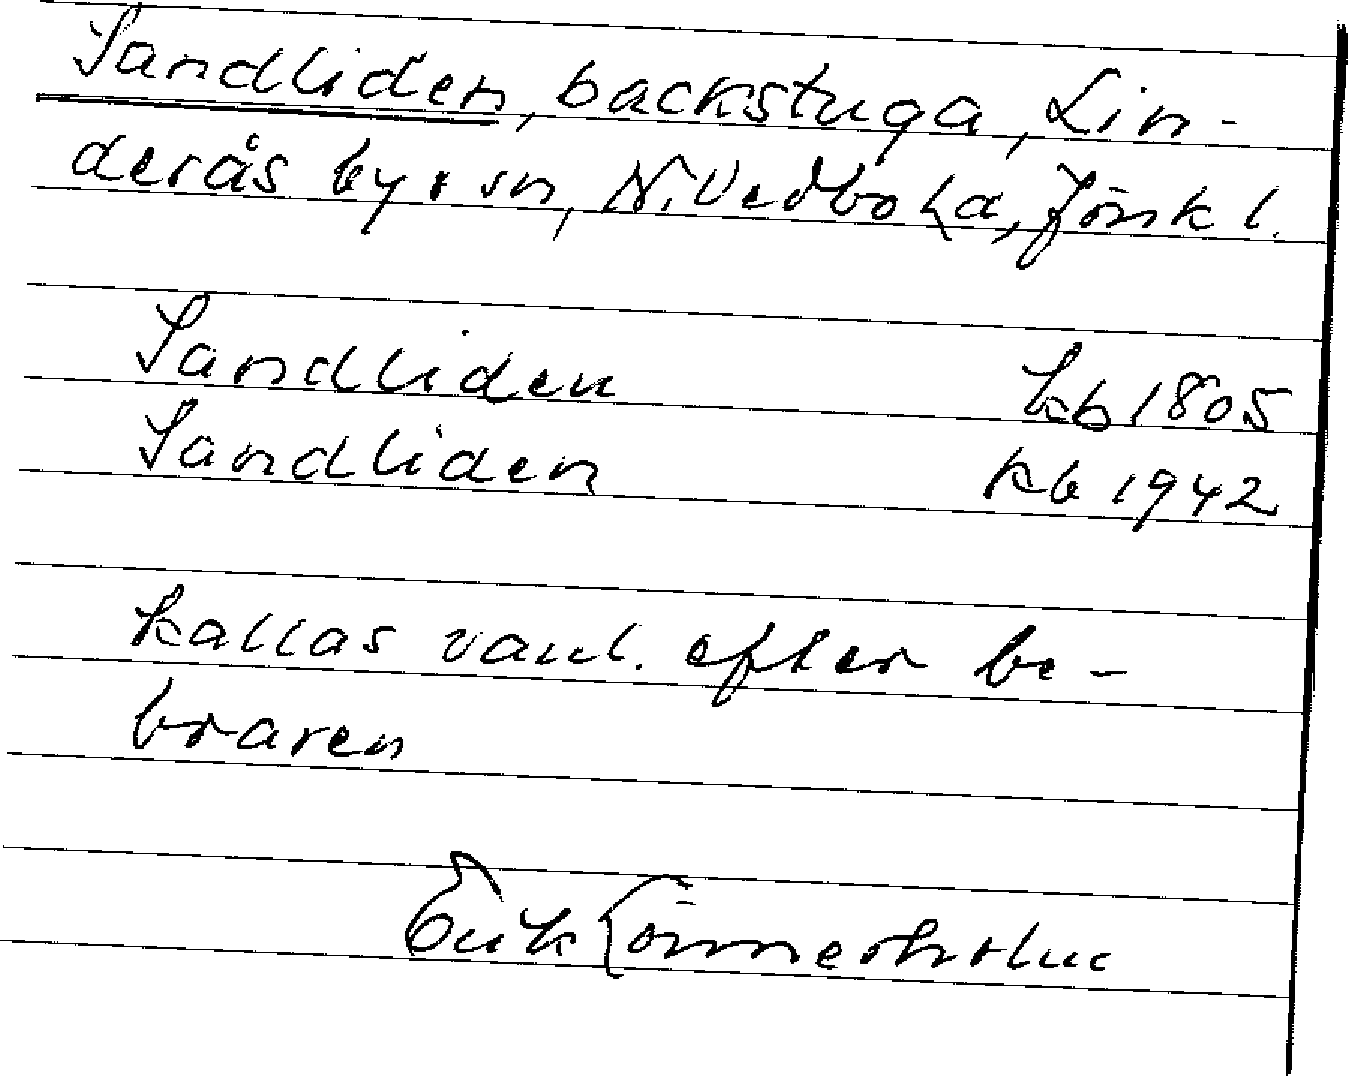 Sandliden, backstuga, Lin-
derås by o sn, N. Vedbo hd, Jönk l.
Sandliden kb 1805
Sandliden kb 1942
kallas vanl. efter be-
braren
Erik